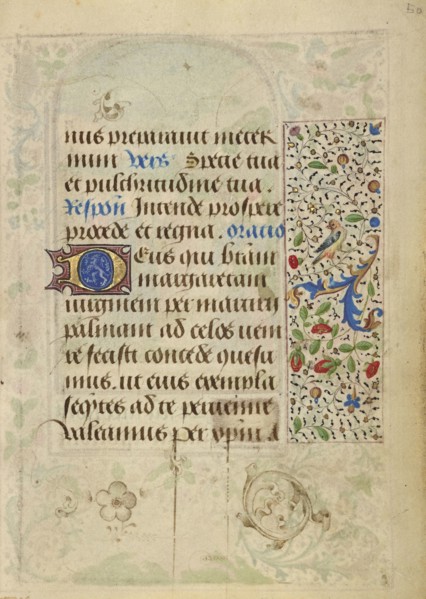 50
nus preparauit in eter
num Vers Specie tua
et pulchritudine tua.
Respon Intende prospere
procede et regna. oratio
Deus qui btām
margaretam
uirginem per martirii
palmam ad celos ueni
re fecisti concede quesu
mus. ut eius exempla
seqūtes ad te peruenire
valeamus per xpm d